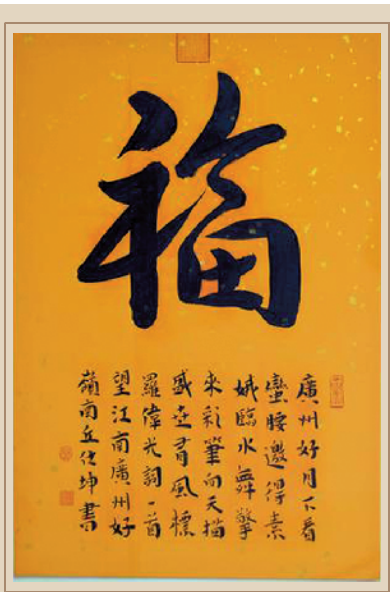 福
廣州好月下看
蠻腰邀得素
娥臨水舞擎
來彩筆向天描
盛世有風標
羅偉光詞一首
望江南廣州好
嶺南丘仕坤書